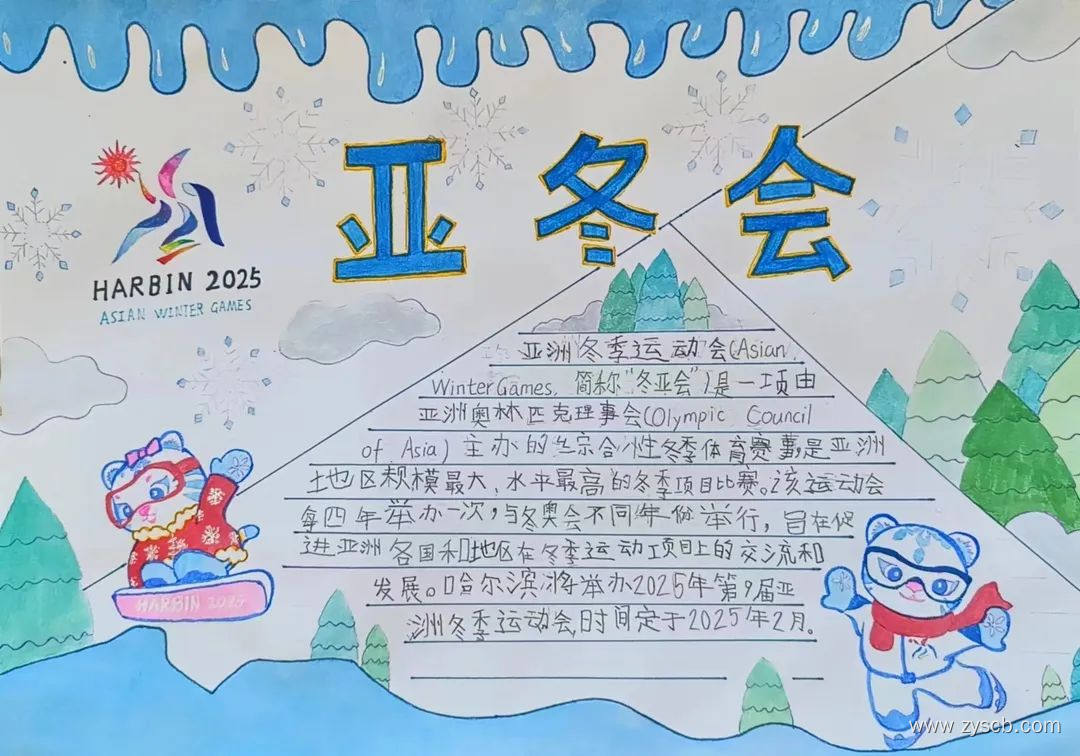 亚冬会
HARBIN 2025
ASIAN WINTER GAMES
亚洲冬季运动会(Asian
Winter Games, 简称"冬亚会")是一项由
亚洲奥林匹克理事会(Olympic Council
of Asia)主办的综合性冬季体育赛事,是亚洲
地区规模最大,水平最高的冬季项目比赛。该运动会
每四年举办一次,与冬奥会不同年份举行,旨在促
进亚洲各国和地区在冬季运动项目上的交流和
发展。哈尔滨将举办2025年第9届亚
洲冬季运动会,时间定于2025年2月。
HARBIN 2025
www.zyscb.com